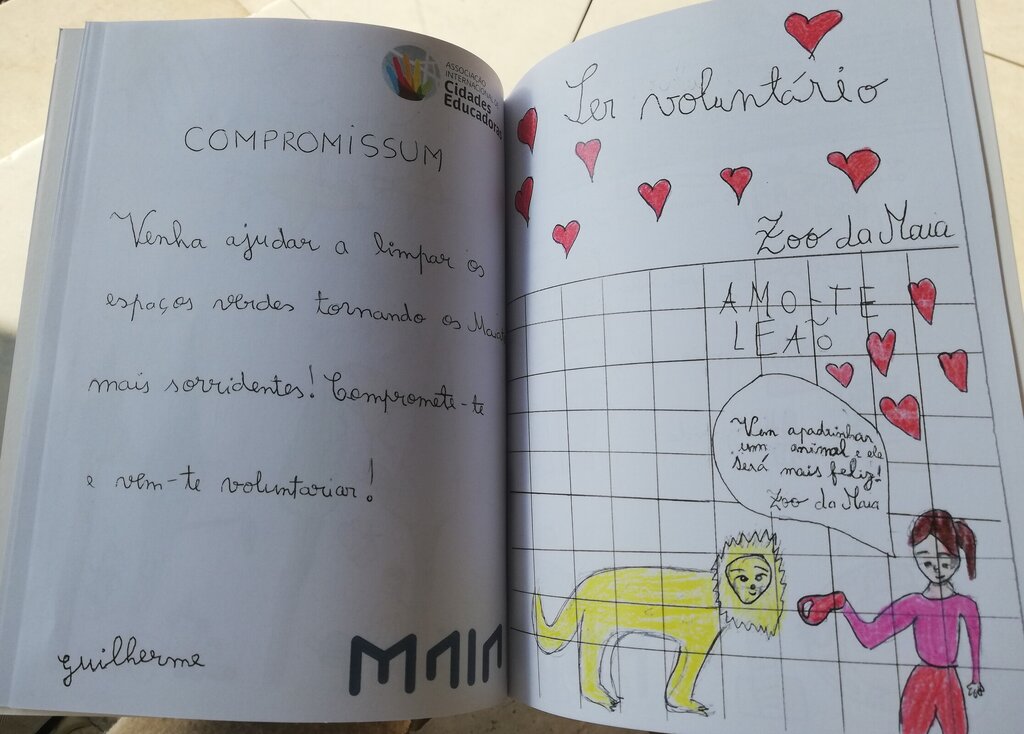 ASSOCIAÇÃO
INTERNACIONAL DE
Cidades
Educadoras
COMPROMISSUM
Venha ajudar a limpar os
espaços verdes tornando os
mais sorridentes! Compromete-te
e vem-te voluntariar!
Guilherme
MAIA
Ser voluntário
Zoo da Maia
AMO-TE
LEÃO
Vem apadrinhar
um animal e ele
será mais feliz!
Zoo da Maia